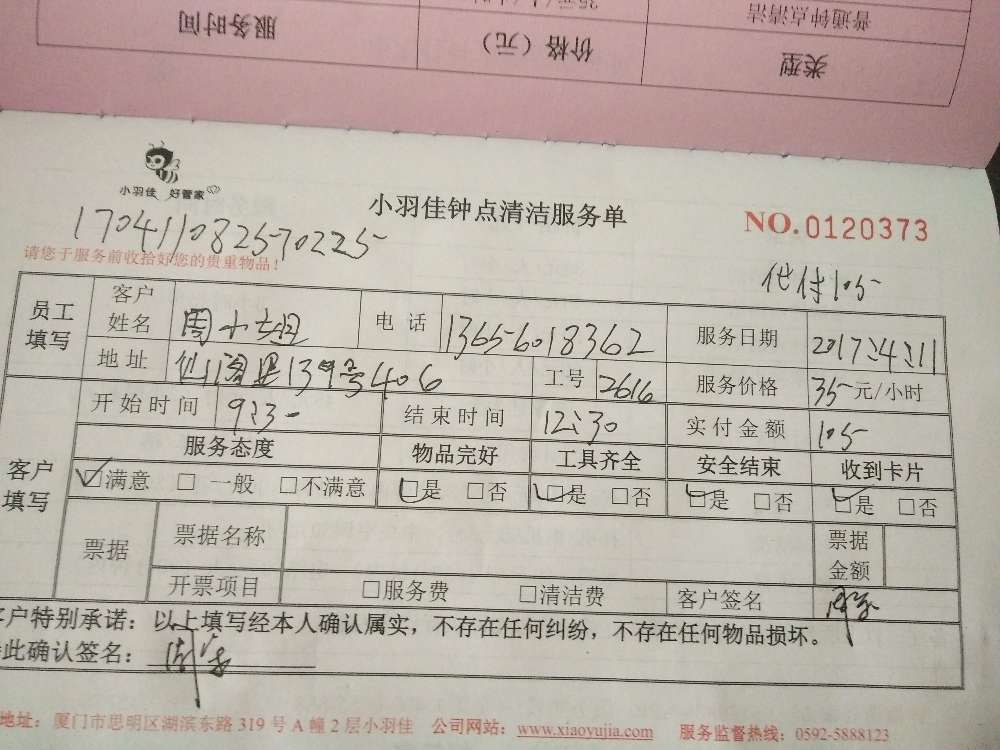 服务时间
价格（元）
类型
普通钟点清洁
小羽佳 好管家
小羽佳钟点清洁服务单
NO.0120373
170411082570225
请您于服务前收拾好您的贵重物品！
代付105
员工填写
客户姓名 周小姐 电话 13656018362 服务日期 2017:4:11
地址 仙阁里139号406 工号 2616 服务价格 35元/小时
客户填写
开始时间 9:30 结束时间 12:30 实付金额 105
服务态度 物品完好 工具齐全 安全结束 收到卡片
☑满意 □一般 □不满意 ☑是 □否 ☑是 □否 ☑是 □否 ☑是 □否
票据 票据名称 票据金额
开票项目 □服务费 □清洁费 客户签名
客户特别承诺：以上填写经本人确认属实，不存在任何纠纷，不存在任何物品损坏。
此确认签名：
地址：厦门市思明区湖滨东路319号A幢2层小羽佳 公司网站：www.xiaoyujia.com 服务监督热线：0592-5888123